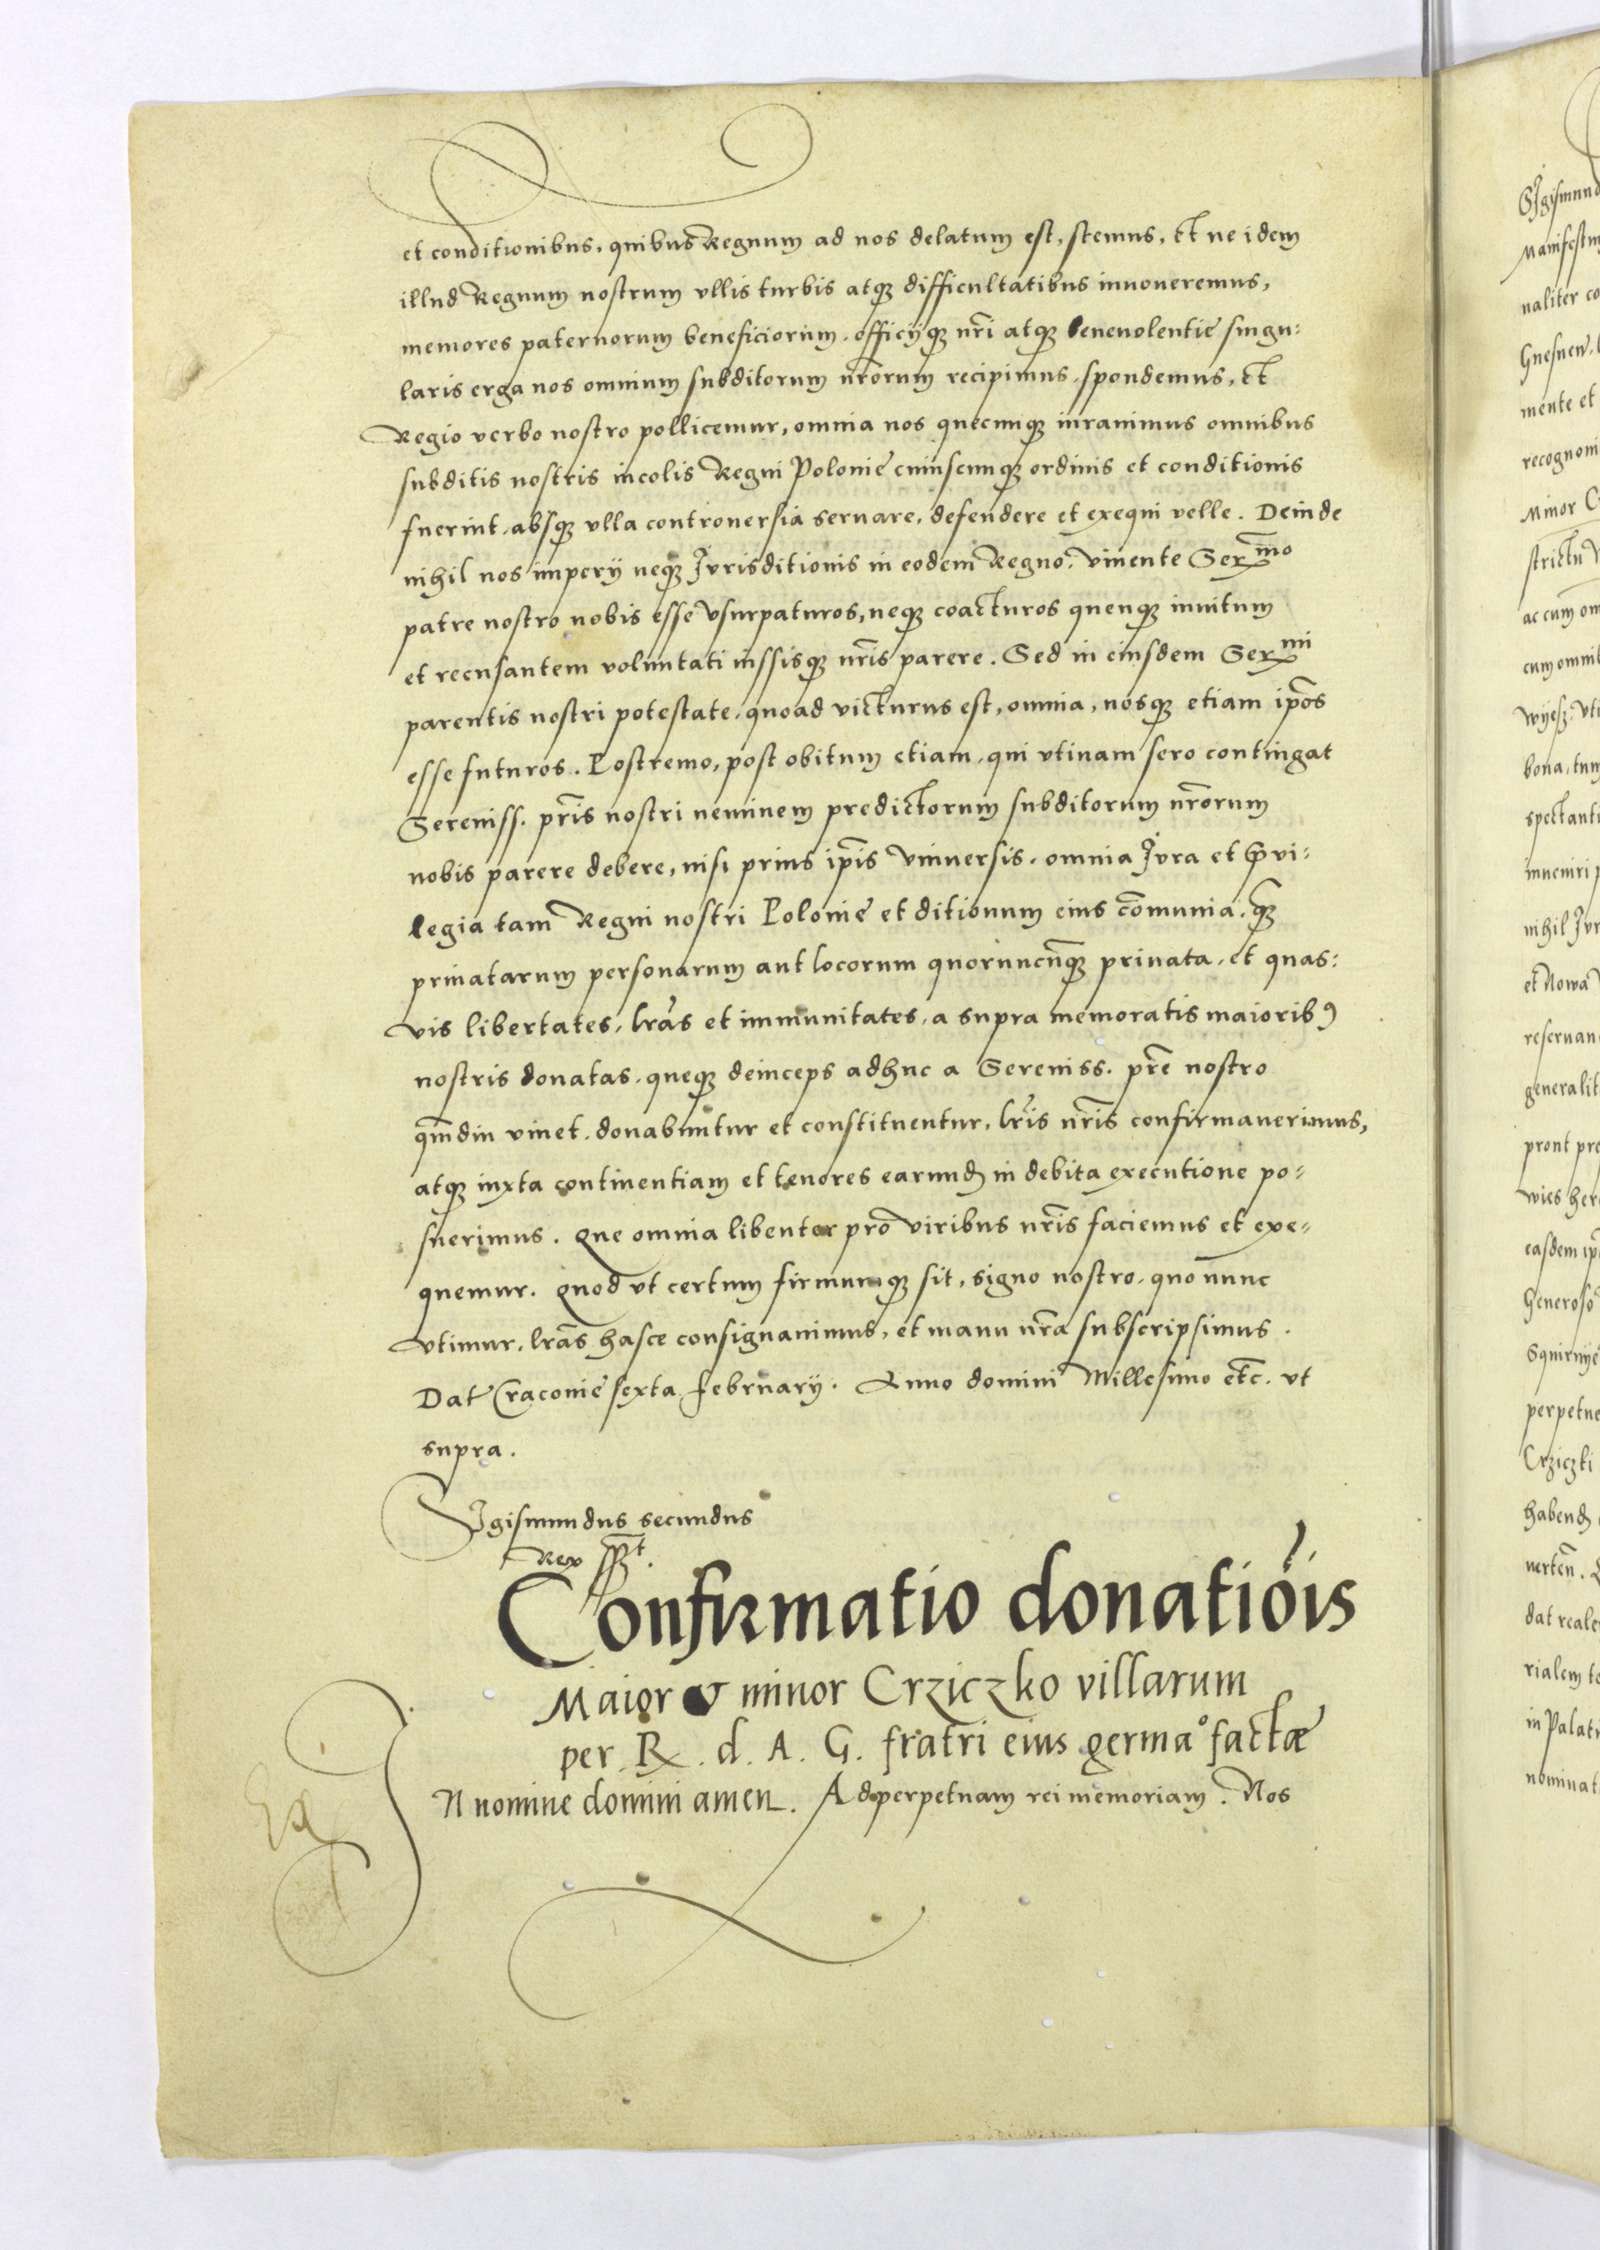 et conditionibus, quibus Regnum ad nos delatum est, stemus, et ne idem
illud Regnum nostrum vllis turbis atqꝫ difficultatibus innoueremus,
memores paternorum beneficiorum, officijqꝫ nr̃i atqꝫ beneuolentię singu:
laris erga nos omnium subditorum nr̃orum recipimus, spondemus, et
Regio verbo nostro pollicemur, omnia nos quecunqꝫ iurauimus omnibus
subditis nostris incolis Regni Polonię cuiuscunqꝫ ordinis et conditionis
fuerint, absqꝫ vlla controuersia seruare, defendere et exequi velle. Deinde
nihil nos imperij neqꝫ Jurisditionis in eodem Regno, viuente Ser^mo
patre nostro nobis esse vsurpaturos, neqꝫ coacturos quenqꝫ inuitum
et recusantem voluntati iussisqꝫ nr̃is parere. Sed in eiusdem Ser^mi
parentis nostri potestate, quoad victurus est, omnia, nosqꝫ etiam ip̃os
esse futuros. Postremo, post obitum etiam, qui vtinam sero contingat
Sereniss. pr̃is nostri neminem predictorum subditorum nr̃orum
nobis parere debere, nisi prius ip̃is vniuersis, omnia Jura et Priui:
legia tam Regni nostri Polonię et ditionum eius com̃unia, qꝫ̃
priuatarum personarum aut locorum quoruncũqꝫ priuata, et quas:
vis libertates, lr̃as et immunitates, a supra memoratis maioribꝰ
nostris donatas, queqꝫ deinceps adhuc a Sereniss. pr̃e nostro
qm̃diu viuet, donabuntur et constituentur, lr̃is nr̃is confirmauerimus,
atqꝫ iuxta continentiam et tenores earund in debita executione po:
suerimus. Que omnia libenter pro viribus nr̃is faciemus et exe:
quemur. Quod vt certum firmumqꝫ sit, signo nostro, quo nunc
vtimur, lr̃as hasce consignauimus, et manu nr̃a subscripsimus.
Dat Cracouię sexta februarij. Anno domini Millesimo etc̃. vt
supra.
Sigismundus secundus
Rex
Confirmatio donatiõis
Maior & minor Crziczko villarum
per R. d. A. G. fratri eius germa° factæ
In nomine domini amen. Ad perpetuam rei memoriam. Nos